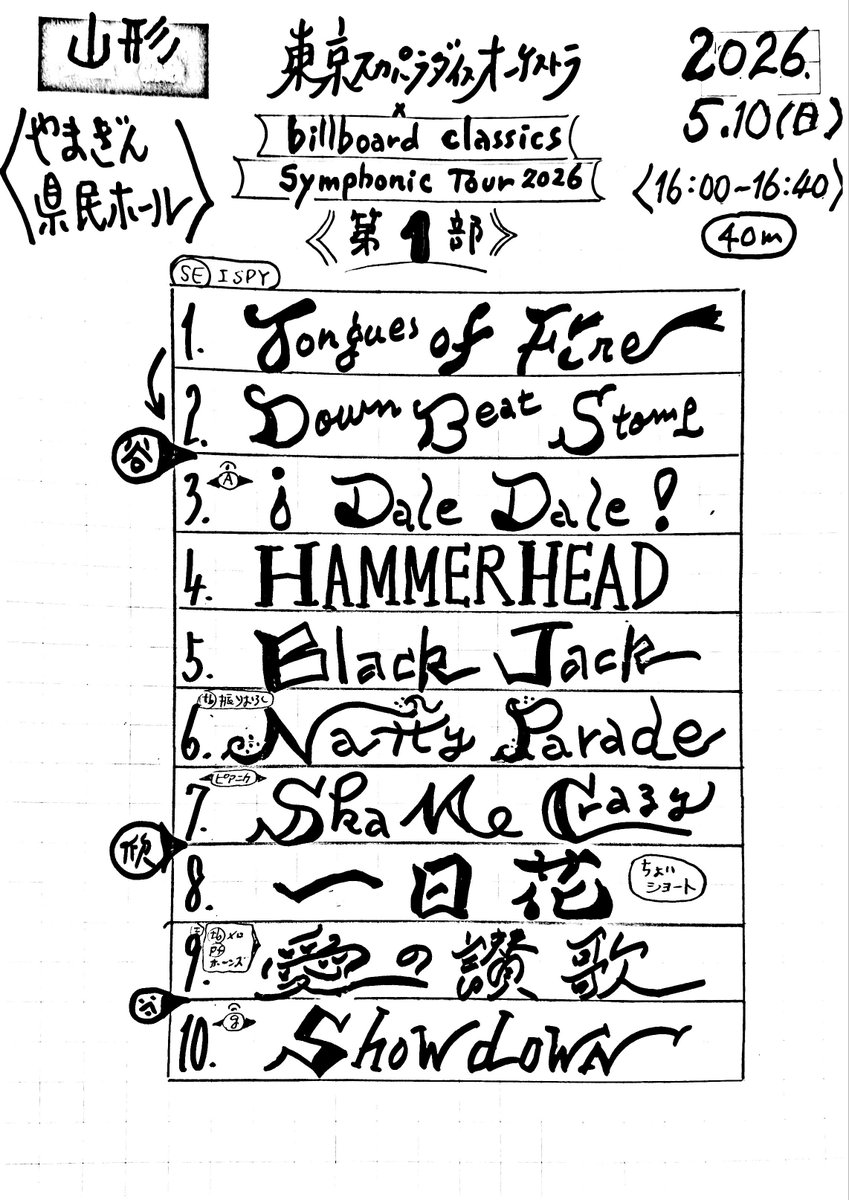 山形
東京スカパラダイスオーケストラ
×
billboard classics
Symphonic Tour 2026
《第1部》
2026.
5.10(日)
〈16:00~16:40〉
40m
〈やまぎん
県民ホール〉
SE I SPY
1. Tongues of Fire
2. Down Beat Stomp
谷
3. A ¡Dale Dale!
4. HAMMERHEAD
5. Black Jack
6. Natty Parade
7. ピアニカ Ska Me Crazy
欣
8. 一日花 ちょいショート
9. 愛の讃歌
ホーンズ
谷
10. g Showdown